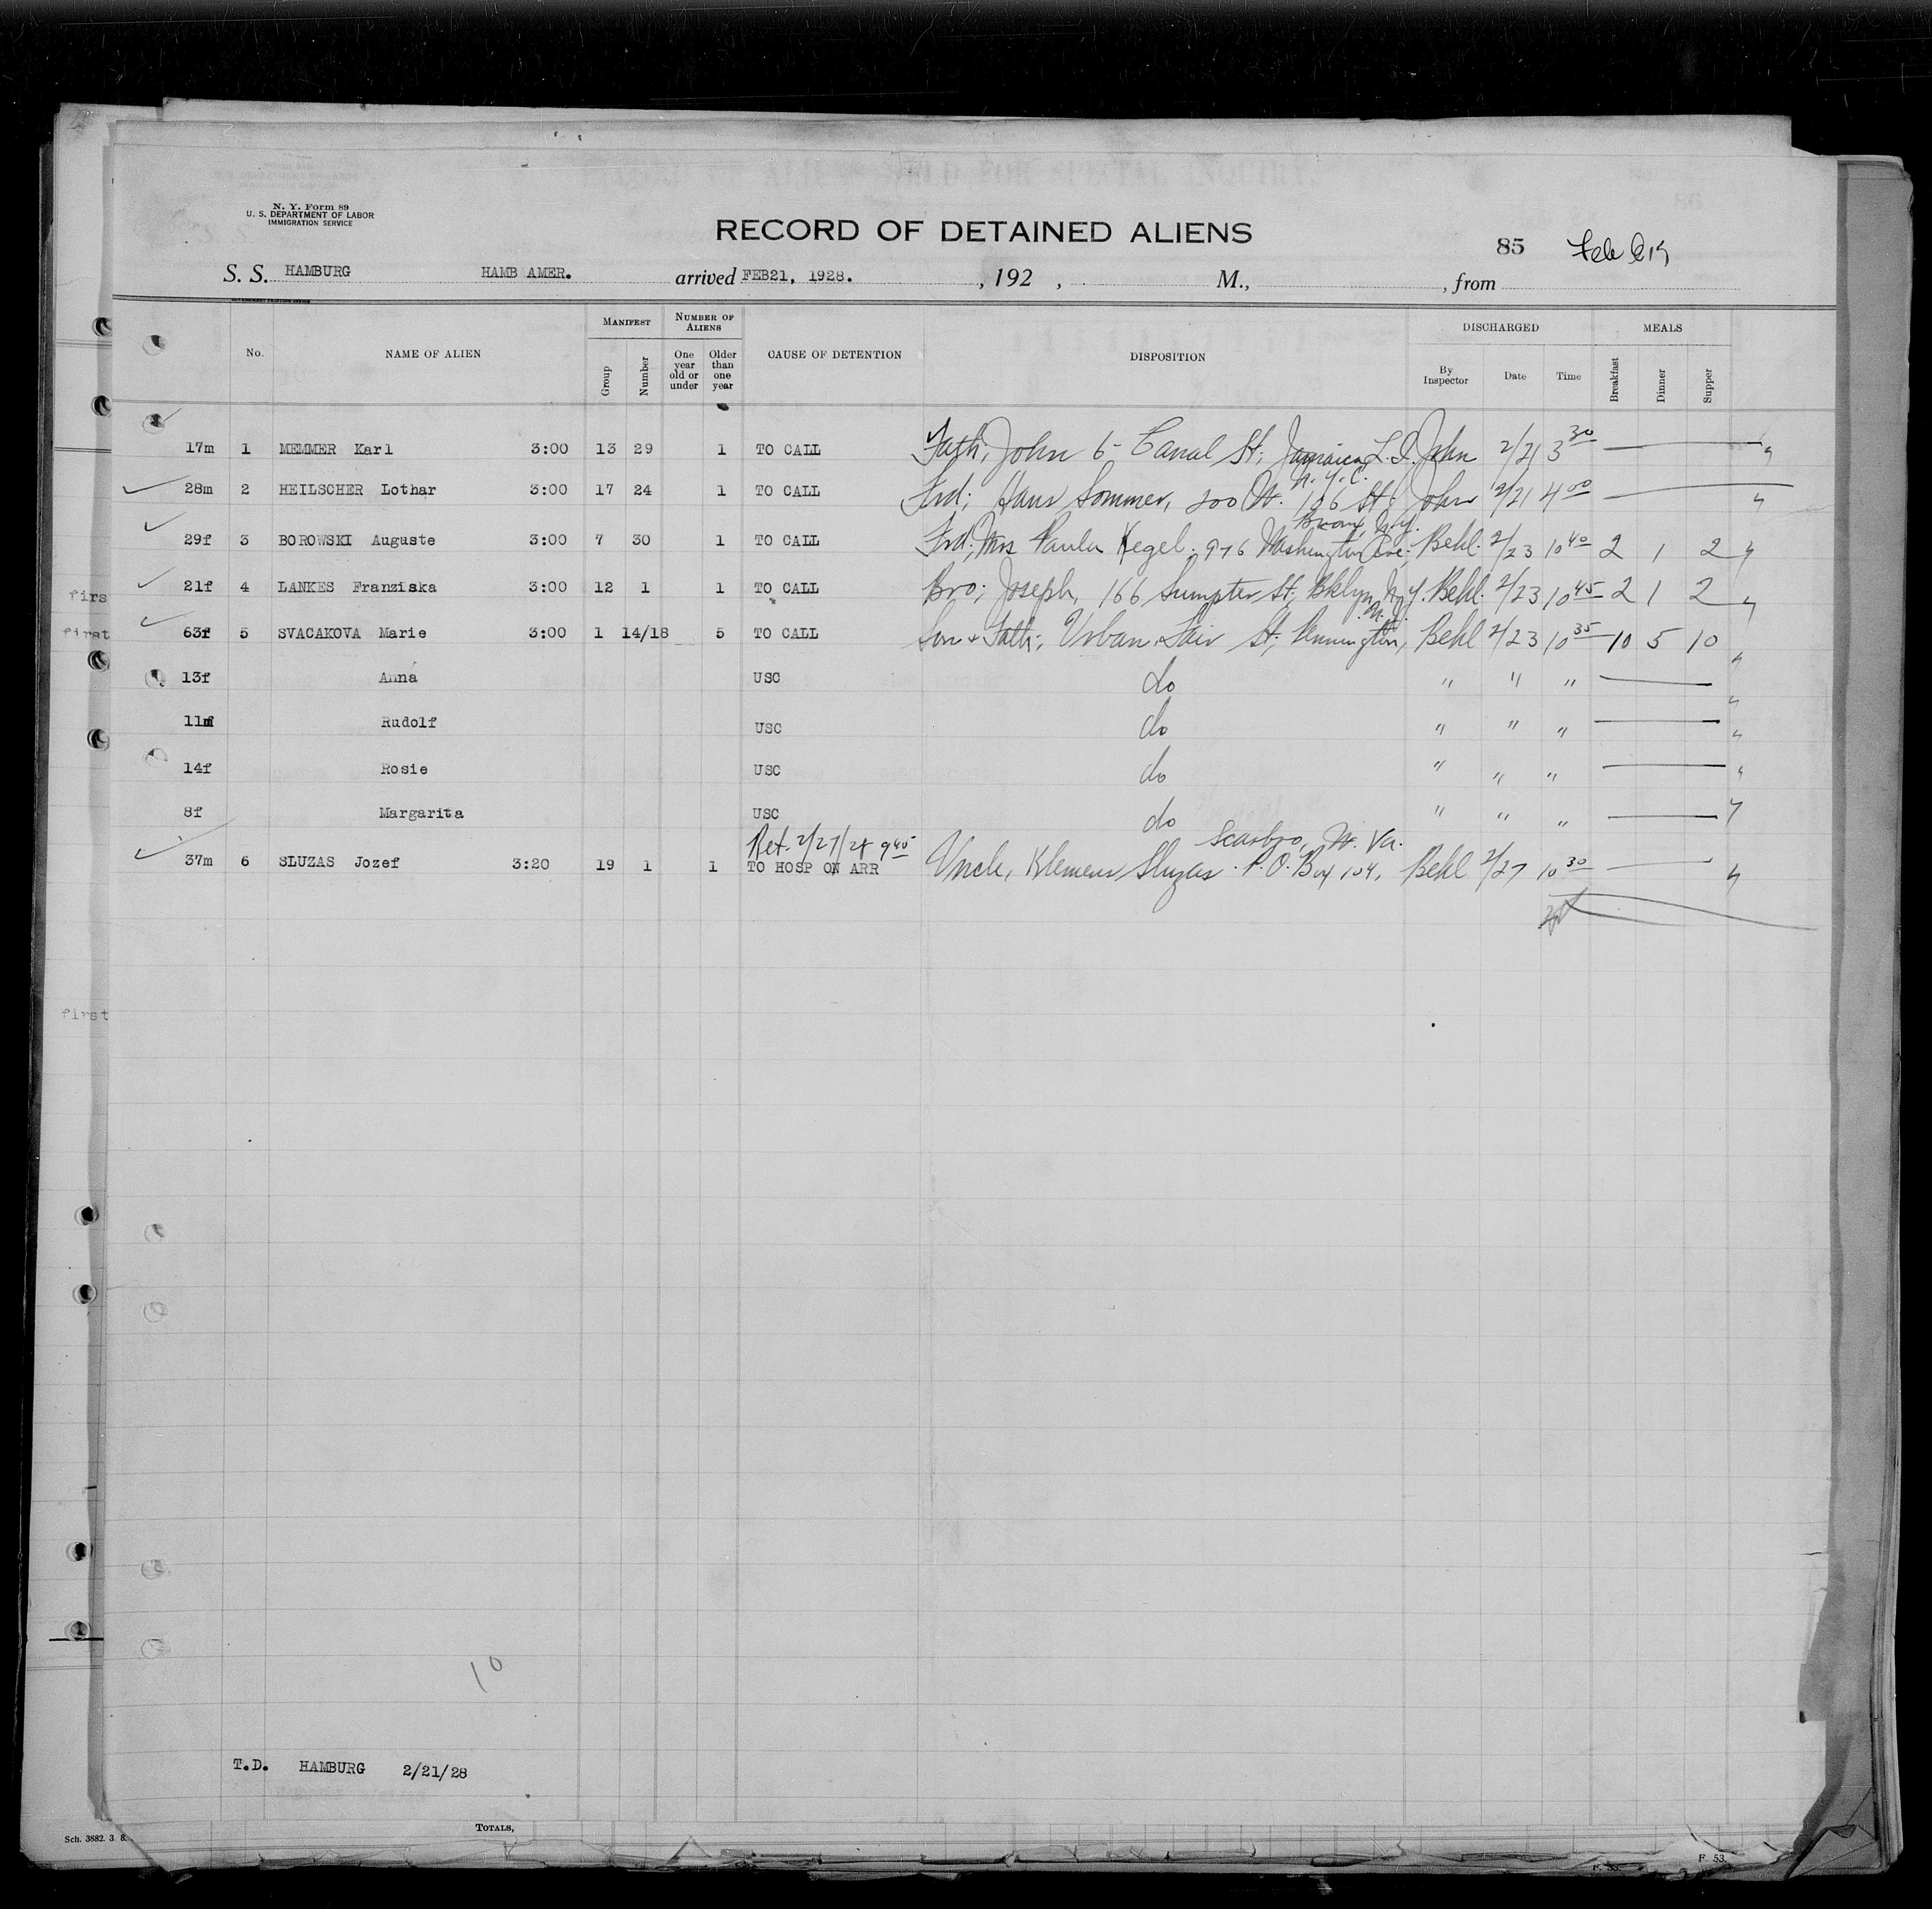 N. Y. Form 89
U. S. DEPARTMENT OF LABOR
IMMIGRATION SERVICE
RECORD OF DETAINED ALIENS
85
S. S. HAMBURG HAMB AMER. arrived FEB21, 1928. , 192 , M., , from
No. NAME OF ALIEN MANIFEST Group Number NUMBER OF ALIENS One year old or under Older than one year CAUSE OF DETENTION DISPOSITION DISCHARGED By Inspector Date Time MEALS Breakfast Dinner Supper
17m 1 MEMMER Karl 3:00 13 29 1 TO CALL Fath; John 6- Canal St; Jamaica L.I. John 2/21 3 30
N.Y.C.
28m 2 HEILSCHER Lothar 3:00 17 24 1 TO CALL Frd; Hans Sommer, 200 W. 106 St; John 2/21 4 00
Bronx, N.Y.
29f 3 BOROWSKI Auguste 3:00 7 30 1 TO CALL Frd; Mrs Paula Kegel. 976 Washington Ave; Behl. 2/23 10 40 2 1 2
firs
21f 4 LANKES Franziska 3:00 12 1 1 TO CALL Bro; Joseph, 166 Sumpter St, Bklyn, N.Y. Behl. 2/23 10 45 2 1 2
N.J.
first
63f 5 SVACAKOVA Marie 3:00 1 14/18 5 TO CALL Son & Fath; Urban, Fair St; Pennington, Behl 2/23 10 35 10 5 10
13f Anna USC do " " "
11m Rudolf USC do " " "
14f Rosie USC do " " "
8f Margarita USC do " " "
Ret. 2/27/28 9 40 Scarbro, W. Va.
37m 6 SLUZAS Jozef 3:20 19 1 1 TO HOSP ON ARR Uncle, Klemens Sluzas P.O. Box 104, Behl 2/27 10 30
first
10
T.D. HAMBURG 2/21/28
TOTALS,
Sch. 3882. 3 8.
F. 53.